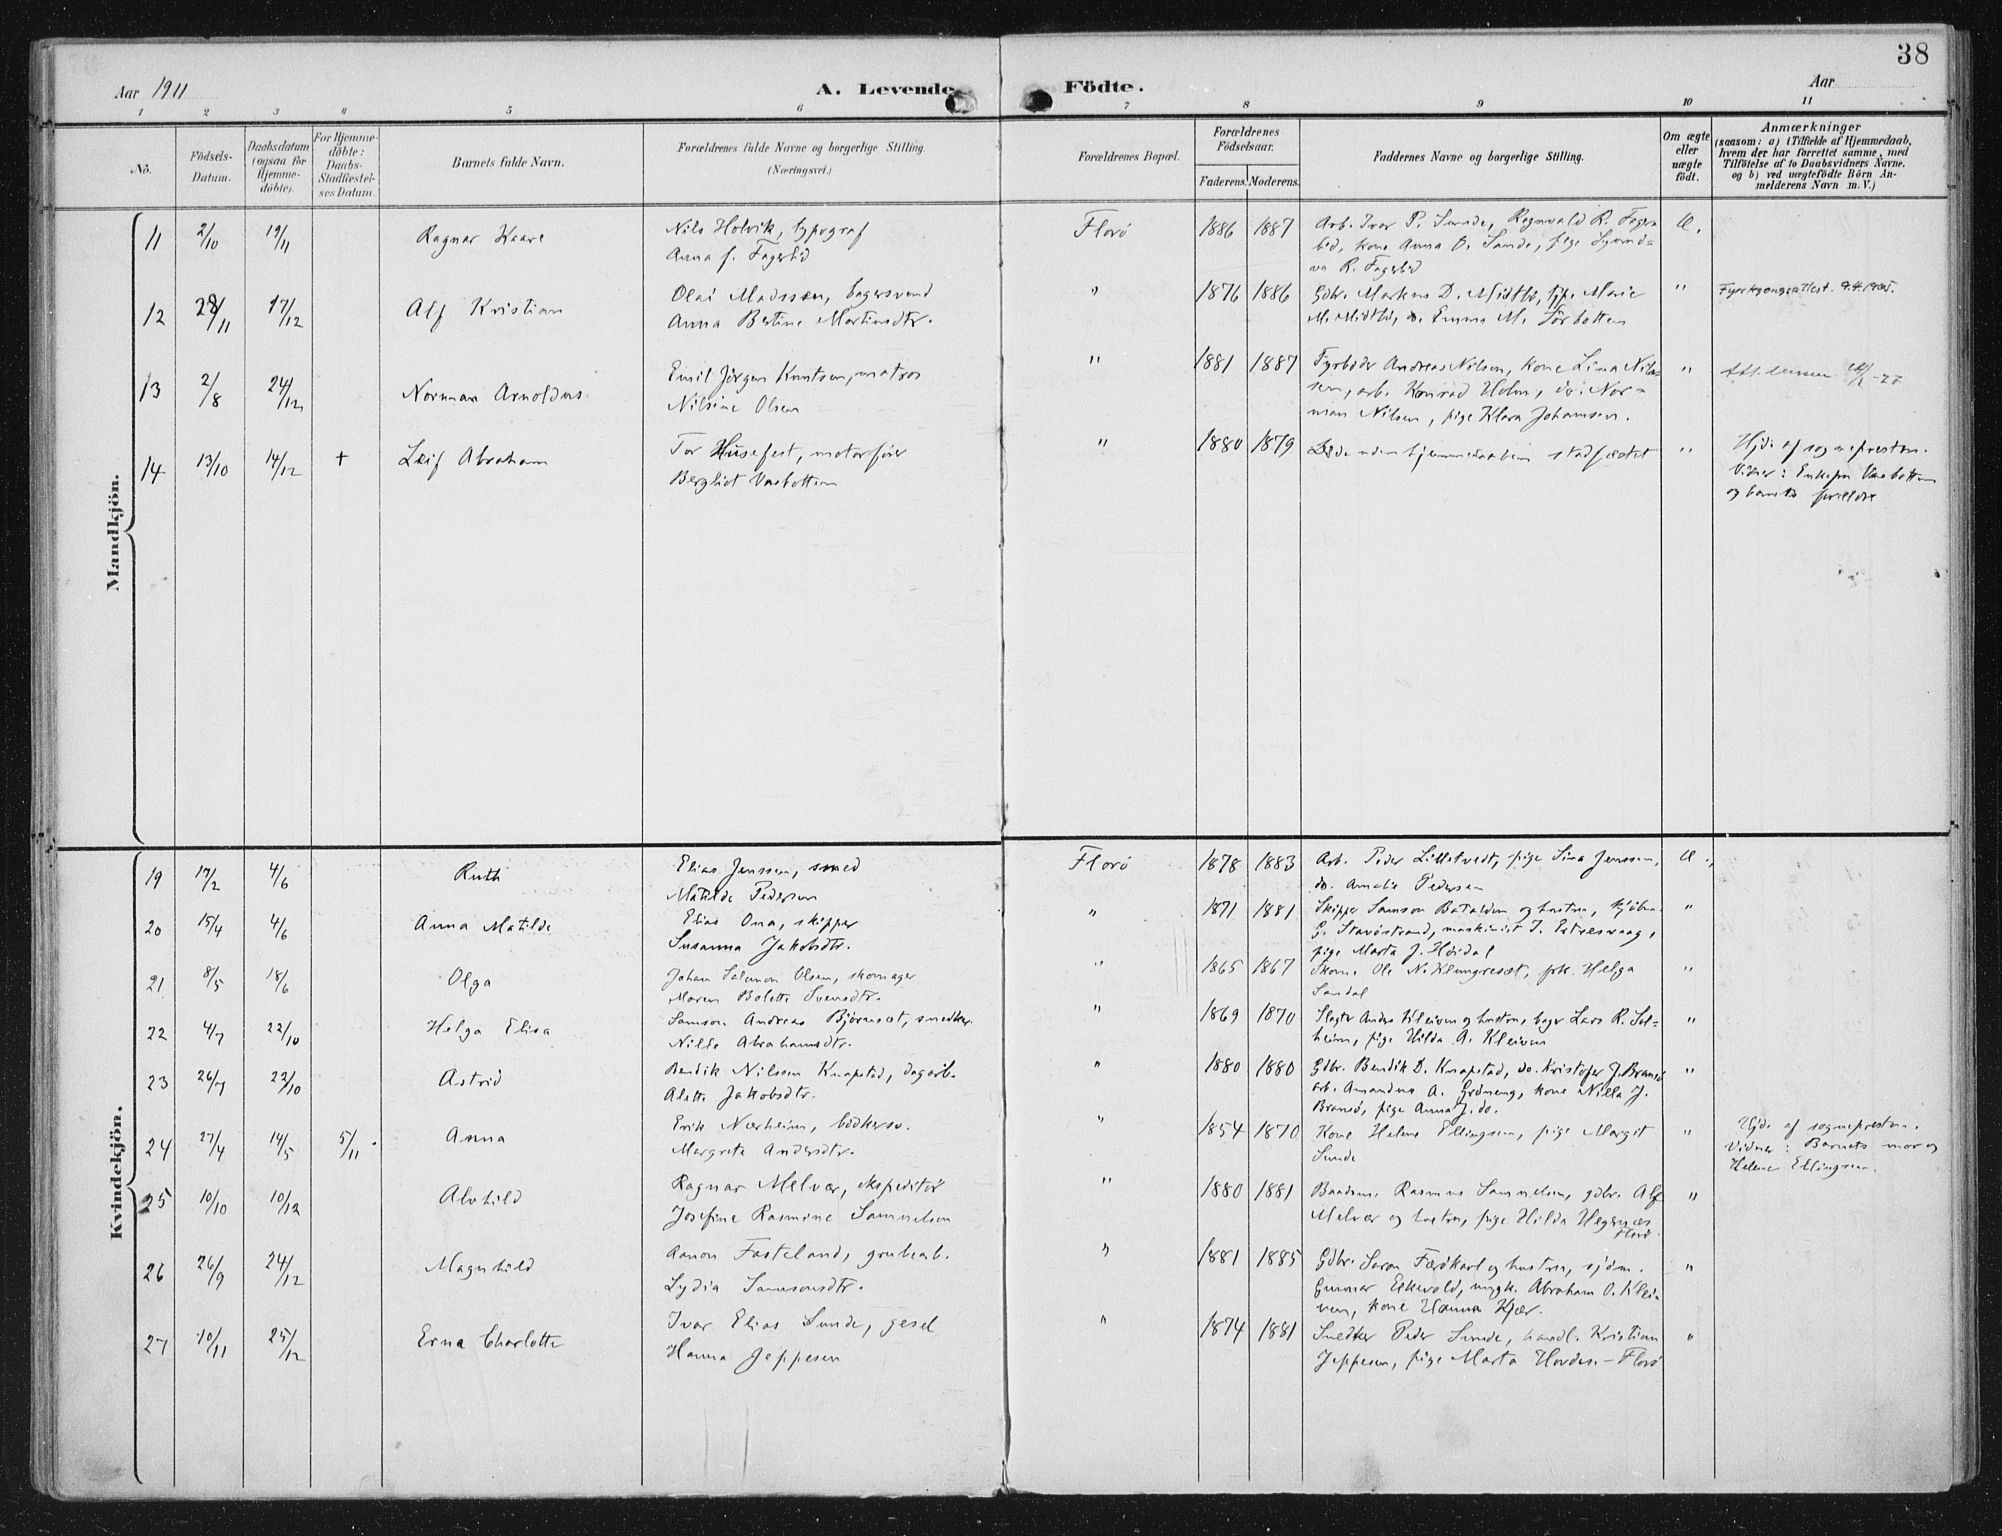 38
Aar 1911
A. Levende
Födte.
Aar
1 2 3 4 5 6 7 8 9 10 11
No.
Födsels-
Datum.
Daabsdatum
(ogsaa for
Hjemme-
döbte).
For Hjemme-
döbte:
Daabs-
Stadfæstel-
ses Datum.
Barnets fulde Navn.
Forældrenes fulde Navne og borgerlige Stilling.
(Næringsvei.)
Forældrenes Bopæl.
Forældrenes
Födselsaar.
Faderens. Moderens.
Faddernes Navne og borgerlige Stilling.
Om ægte
eller
uægte
födt.
Anmærkninger
(saasom: a) i Tilfælde af Hjemmedaab,
hvem der har forrettet samme, med
Tilföielse af to Daabsvidners Navne,
og b) ved uægtefödte Börn An-
melderens Navn m. V.)
Mandkjön.
11 2/10 19/11 Ragnar Kaare
Nils Holvik, typograf
Anna f. Fagerlid
Florö 1886 1887
Arb. Ivar P. Sunde, Ragnvald R. Fager-
lid, kone Anna O. Sunde, pige
R. Fagerlid
12 28/11 17/12 Alf Kristian
Olai Madssen, bagersvend
Anna Bertine Martinsdtr.
" 1876 1886
Gdbr. Markus D. Midtbö, Marie
M. Midtbö, do. Emma M. Sörbotten
"
13 2/8 24/12 Norman Arnoldus
Emil Jörgen Knutsen, matros
Nilsine Olsen
" 1881 1887
Fyrböder Andreas Nilsen, kone Lina Nil-
sen, arb. Konrad Holm, do. Nor-
man Nilsen, pige Klara Johansen.
"
14 13/10 14/12 + Leif Abraham
Tor Husefest, motorfører
Bergliot Vasbotten
" 1880 1879
Döde uden hjemmedaaben stadfæstet
"
Hjd. af sognepresten.
Vidner: Enkefru Vasbotten
og barnets forældre
Kvindekjön.
19 17/2 4/6 Ruth
Elias Jenssen, smed
Matilde Pedersen
Florö 1878 1883
Arb. Peder Lilletvedt, pige Lina Jenssen,
do. Amalie Pedersen
20 15/4 4/6 Anna Matilde
Elias Ona, skipper
Susanna Jakobsdtr.
" 1871 1881
Skipper Samson Batalden og hustru,
G. Stavöstrand, maskinist
pige Marta J. Höidal
"
21 8/5 18/6 Olga
Johan Salomon Olsen, skomager
Maren Bolette Svensdtr.
" 1865 1867
Skom. Ole N. Klungreset, frk. Helga
Sandal
"
22 4/7 22/10 Helga Elisa
Samson Andreas Björneset, snedker.
Nille Abrahamsdtr.
" 1869 1870
Slagter Anders Kleiven og hustru, bager Lars R. Sol-
heim, pige Hilda A. Kleiven
"
23 26/7 22/10 Astrid
Bendik Nilsen Knapstad, dagarb.
Alette Jakobsdtr.
" 1880 1880
Gdbr. Bendik D. Knapstad, do. Kristofer J. Bransö
arb. Amandus A. Gröneng, kone Nilla J.
Bransö, pige Anna J. do.
"
24 27/4 14/5 5/11 Anna
Erik Nærheim, bödkersv.
Margrete Andersdtr.
" 1854 1870
Kone Helene Ellingsen, pige Margit
Sunde
"
Hjd. af sognepresten.
Vidner: Barnets mor og
Helene Ellingsen.
25 10/10 10/12 Alvhild
Ragnar Melvær, ekspeditør
Josefine Rasmine Samuelsen
" 1880 1881
Baadsm. Rasmus Samuelsen, gdbr. Alf
Melvær og hustru, pige Hilda Hegrenæs
Florö.
"
26 26/9 24/12 Magnhild
Aanon Fasteland, grubearb.
Lydia Samsonsdtr.
" 1881 1885
Gdbr. Saron Færökavl og hustru, sjöm.
Gunnar Eikevold, ungk. Abraham O. Klei-
ven, kone Hanna Kjær.
"
27 10/11 25/12 Erna Charlotte
Ivar Elias Sunde, gesel
Hanna Jeppesen
" 1874 1881
Snedker Peder Sunde, handl. Kristian
Jeppesen, pige Marta Hovden - Florö
"